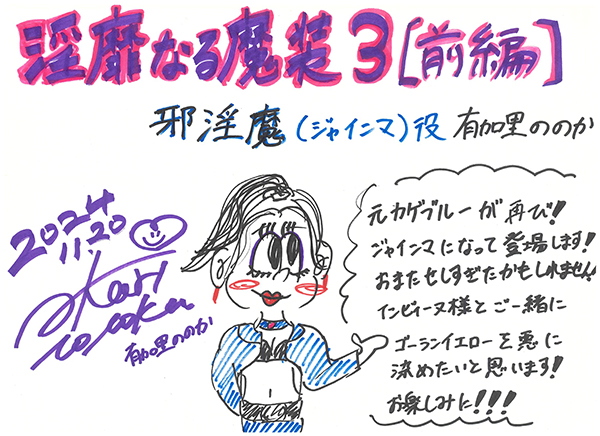 淫靡なる魔装3[前編]
邪淫魔(ジャインマ)役 有加里ののか
元カゲブルーが再び!
ジャインマになって登場します!
おまたせしすぎたかもしれません!
インビィーヌ様とご一緒に
ゴーランイエローを悪に
染めたいと思います!
お楽しみに!!!
2024
11.20
有加里ののか